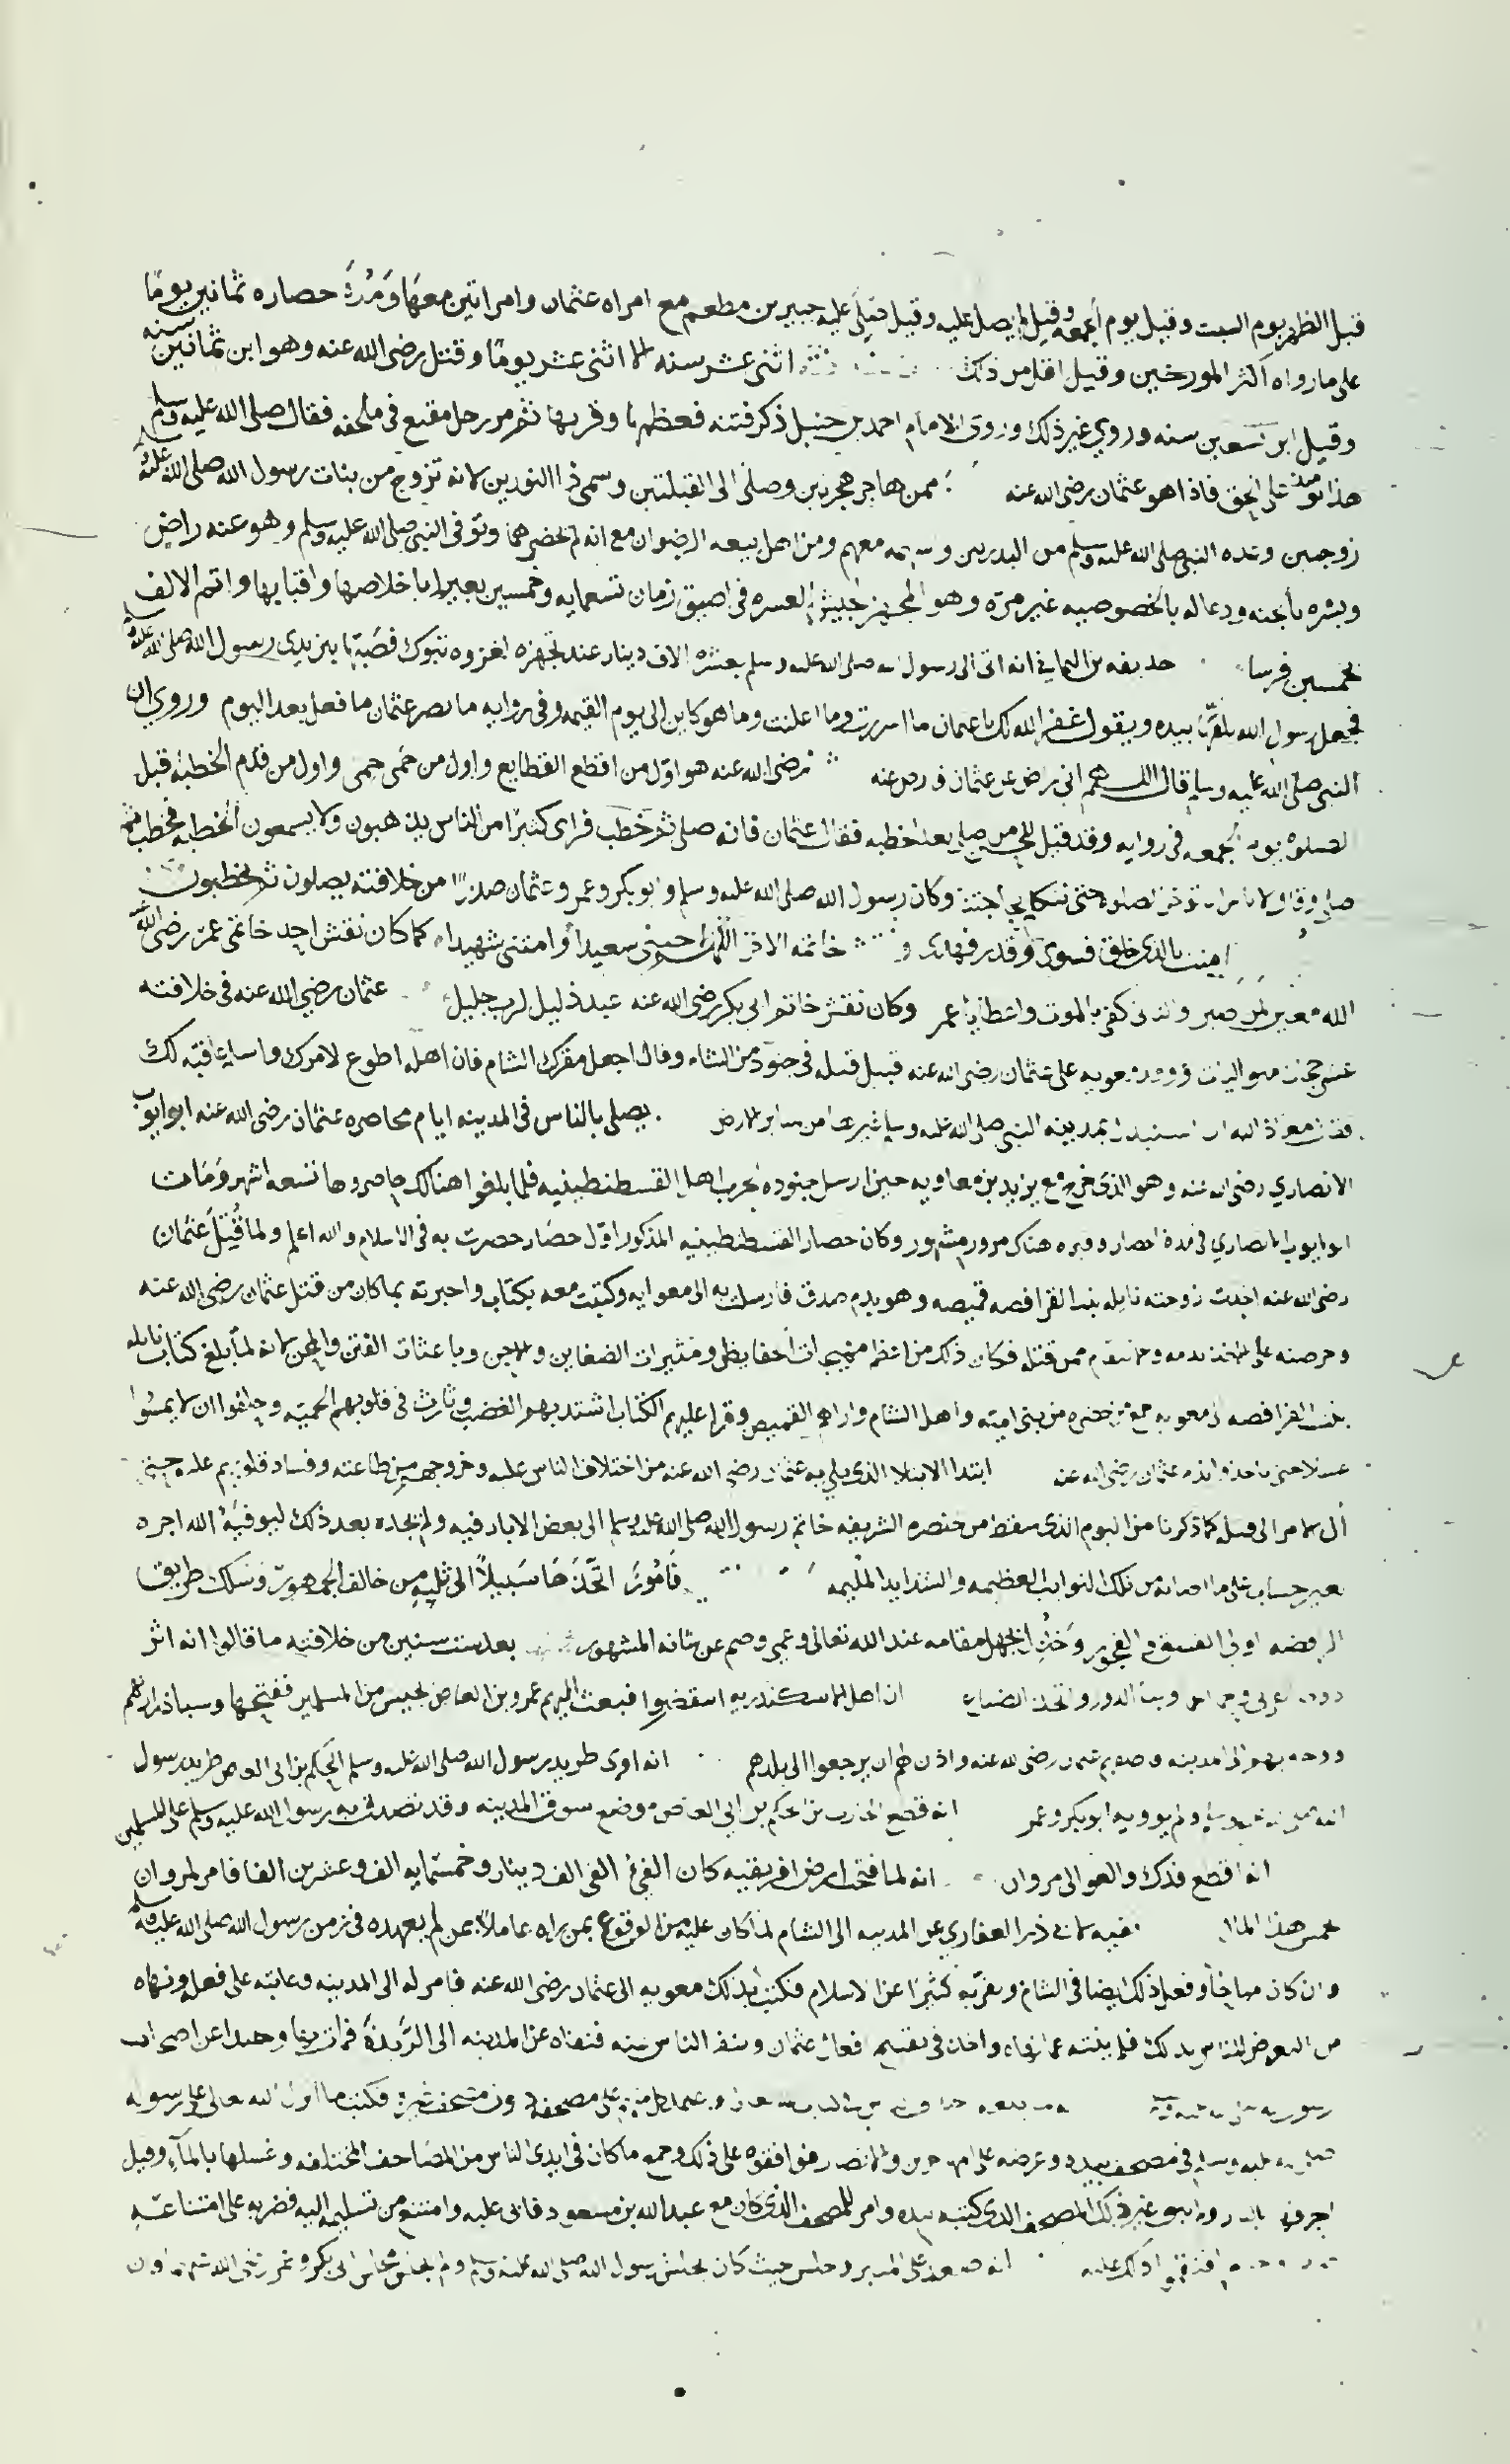 قبل الظهر يوم السبت وقيل يوم الجمعه وقيل لم يصل عليه وقيل صلى عليه جبير بن مطعم مع امراه عثمان وامراتين معها ومدة حصاره ثمانين يوما
على ما رواه اكثر المورخين وقيل اقل من ذلك اثنى عشر سنه الا اثنى عشر يوما وقتل رضى الله عنه وهو ابن ثمانين سنه
وقيل ابن تسعين سنه وروي غير ذلك وروى الامام احمد بن حنبل ذكر فتنه فعظمها وقربها ثم مر رجل مقنع في ملحفه فقال صلى الله عليه وسلم
هذا يومئذ على الحق فاذا هو عثمان رضى الله عنه ممن هاجر هجرتين وصلى الى القبلتين وسمى ذا النورين لانه تزوج من بنات رسول الله صلى الله عليه وسلم
زوجتين وعده النبى صلى الله عليه وسلم من البدريين وسهمه معهم ومن اهل بيعه الرضوان مع انه لم يحضرهما وتوفى النبى صلى الله عليه وسلم وهو عنه راض
وبشره بالجنه ودعا له بالخصوصيه غير مرة وهو المجهز لجيش العسره في اضيق زمان تسعمايه وخمسين بعيرا باحلاسها واقتابها واتم الالف
بخمسين فرسا حذيفه بن اليماني انه اتى الى رسول الله صلى الله عليه وسلم بعشرة الاف دينار عند تجهزه لغزوه تبوك فصبها بين يدى رسول الله صلى الله عليه وسلم
فجعل رسول الله يقلبها بيده ويقول غفر الله لك يا عثمان ما اسررت وما اعلنت وما هو كاين الى يوم القيمه وفى روايه ما يضر عثمان ما فعل بعد اليوم وروي ان
النبى صلى الله عليه وسلم قال اللهم انى رضى عن عثمان فارض عنه رضى الله عنه هو اول من اقطع القطايع واول من حمى حمى واول من قدم الخطبه قبل
الصلوه يوم الجمعه فى روايه وقد قيل للحى من صلى بعد الخطبه فقال عثمان فانه صلى ثم خطب فراى كثيرا من الناس يذهبون ولا يسمعون الخطبه فخطب ثم
صلى وكان رسول الله صلى الله عليه وسلم وابو بكر وعمر وعثمان صدرا من خلافته يصلون ثم يخطبون
امنت بالذى خلق فسوى وقدر فهدى خاتمه الاخر اللهم احينى سعيدا وامتنى شهيدا كما كان نقش احد خاتمى عمر رضى الله
الله معين لمن صبر والثانى كفى بالموت واعظا يا عمر وكان نقش خاتم ابى بكر رضى الله عنه عبد ذليل لرب جليل عثمان رضي الله عنه فى خلافته
عشر حجات متواليات معويه على عثمان رضى الله عنه قبيل قتله فى جنود من الشام وقال اجعل مقرك الشام فان اهله اطوع لامرك
فقال معاذ الله ان استبدل بمدينه النبى صلى الله عليه وسلم غيرها من ساير الارض يصلى بالناس فى المدينه ايام محاصره عثمان رضى الله عنه ابو ايوب
الانصاري رضى الله عنه وهو الذى خرج مع يزيد بن معاويه حين ارسل جنوده لحرب اهل القسطنطينيه فلما بلغوا هنالك حاصروها تسعه اشهر ومات
ابو ايوب الانصاري في مدة الحصار وقبره هناك مزور مشهور وكان حصار القسطنطينيه المذكور اول حصار حصرت به فى الاسلام والله اعلم ولما قتل عثمان
رضى الله عنه اخذت زوجته نايله بنت الفرافصه قميصه وهو بدم صدق فارسلت به الى معوايه وكتبت معه بكتاب واخبرته بما كان من قتل عثمان رضى الله عنه
وحرصته على الاخذ بدمه والانتقام ممن قتله فكان ذلك من اعظم مهيجات الحفايظ ومثيرات الضغاين والاحن وباعثات الفتن والمحن لانه لما بلغ كتاب نايله
بنت الفرافصه الى معويه جمع من حضره من بنى اميه واهل الشام واراهم القميص وقرا عليهم الكتاب اشتد بهم الغضب وثارت فى قلوبهم الحميه وحلفوا ان لا يمسوا
عثمان رضى الله عنه ابتدا الابتلا الذى بلي به عثمان رضى الله عنه من اختلاف الناس عليه وخروجهم من طاعته وفساد قلوبهم عليه حتى
آل الامر الى قتله كما ذكرنا من اليوم الذى سقط من خنصره الشريفه خاتم رسول الله صلى الله عليه وسلم الى بعض الابار فيه ولم يجده بعد ذلك ليوفيه الله اجره
بغير حساب على ما اصابه من تلك النوايب العظيمه والشدايد المليمه فامور اتخذها سبيلا الى ثلبه من خالف الجمهور وسلك طريق
الرافضه اولى الفسق والفجور وخذل بجهل مقامه عند الله تعالى وعمي وصم عن شانه المشهور بعد ست سنين من خلافته ما قالوا انه اثر
وبنا الدور واتخذ الضياع ان اهل الاسكندريه انتقضوا فبعث اليهم عمرو بن العاص بجيش من المسلمين ففتحها وسبا ذراريهم
ووجه بهم الى المدينه عثمان رضى الله عنه واذن لهم ان يرجعوا الى بلدهم انه اوى طريد رسول الله صلى الله عليه وسلم الحكم بن ابى العاص طريد رسول
الله صلى الله عليه وسلم ولم يوويه ابو بكر وعمر انه قطع الحارث بن الحكم بن ابي العاص موضع سوق المدينه وقد تصدق به رسول الله عليه وسلم على المسلمين
انه اقطع فدك والعوالى مروان انه لما فتحت ارض افريقيه كان الفئ الفى الف دينار وخمسمايه الف وعشرين الفا فامر لمروان
بخمس هذا المال نفيه لابى ذر الغفاري عن المدينه الى الشام لما كان عليه من الوقوع بمن يراه عاملا بمن لم يعهده فى زمن رسول الله صلى الله عليه وسلم
وان كان مباحا وفعل ذلك ايضا فى الشام ونفر به كثيرا عن الاسلام فكتب بذلك معويه الى عثمان رضى الله عنه فامر له الى المدينه وعاتبه على فعله ونهاه
من التعرض للناس بذلك فلم ينته عما نهاه واخذ فى تقبيح افعال عثمان ونفر الناس منه فنفاه عن المدينه الى الربذة فمات بها وحيدا عن اصحاب
رسول الله على مصحفه دون مصحف غيره فكتب ما انزل الله تعالى على رسوله
صلى الله عليه وسلم فى مصحف بيده وعرضه على المهاجرين والانصار فوافقوه على ذلك وجمع ما كان فى ايدى الناس من المصاحف المختلفه وغسلها بالمآء وقيل
احرقها بالنار ولم يبق غير ذلك المصحف الذى كتبه بيده وامر للمصحف الذى كان مع عبد الله بن مسعود فابى عليه وامتنع من تسليمه اليه فضربه على امتناعه
انه صعد على المنبر وجلس حيث كان يجلس رسول الله صلى الله عليه وسلم ولم يجلس مجلس ابى بكر وعمر رضى الله عنهما